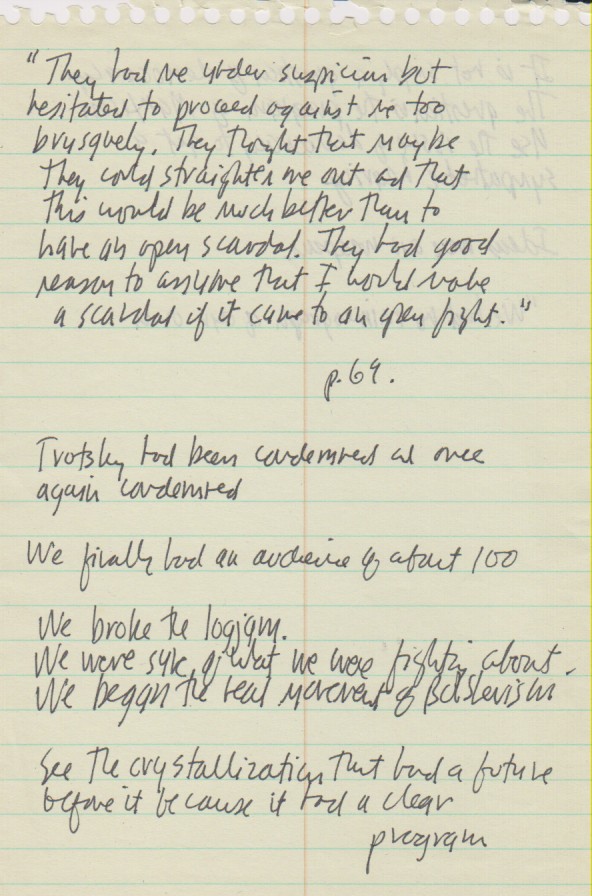 "They had me under suspicion but
hesitated to proceed against me too
brusquely. They thought that maybe
they could straighten me out and that
this would be much better than to
have an open scandal. They had good
reason to assume that I would make
a scandal if it came to an open fight."
p. 69.
Trotsky had been condemned and once
again condemned
We finally had an audience of about 100
We broke the logjam.
We were sure of what we were fighting about.
We began the real movement of Bolshevism
See the crystallization that had a future
before it because it had a clear
program